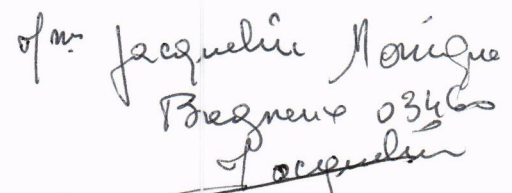 Mme Jacquelin Monique
Bagneux 03460
Jacquelin